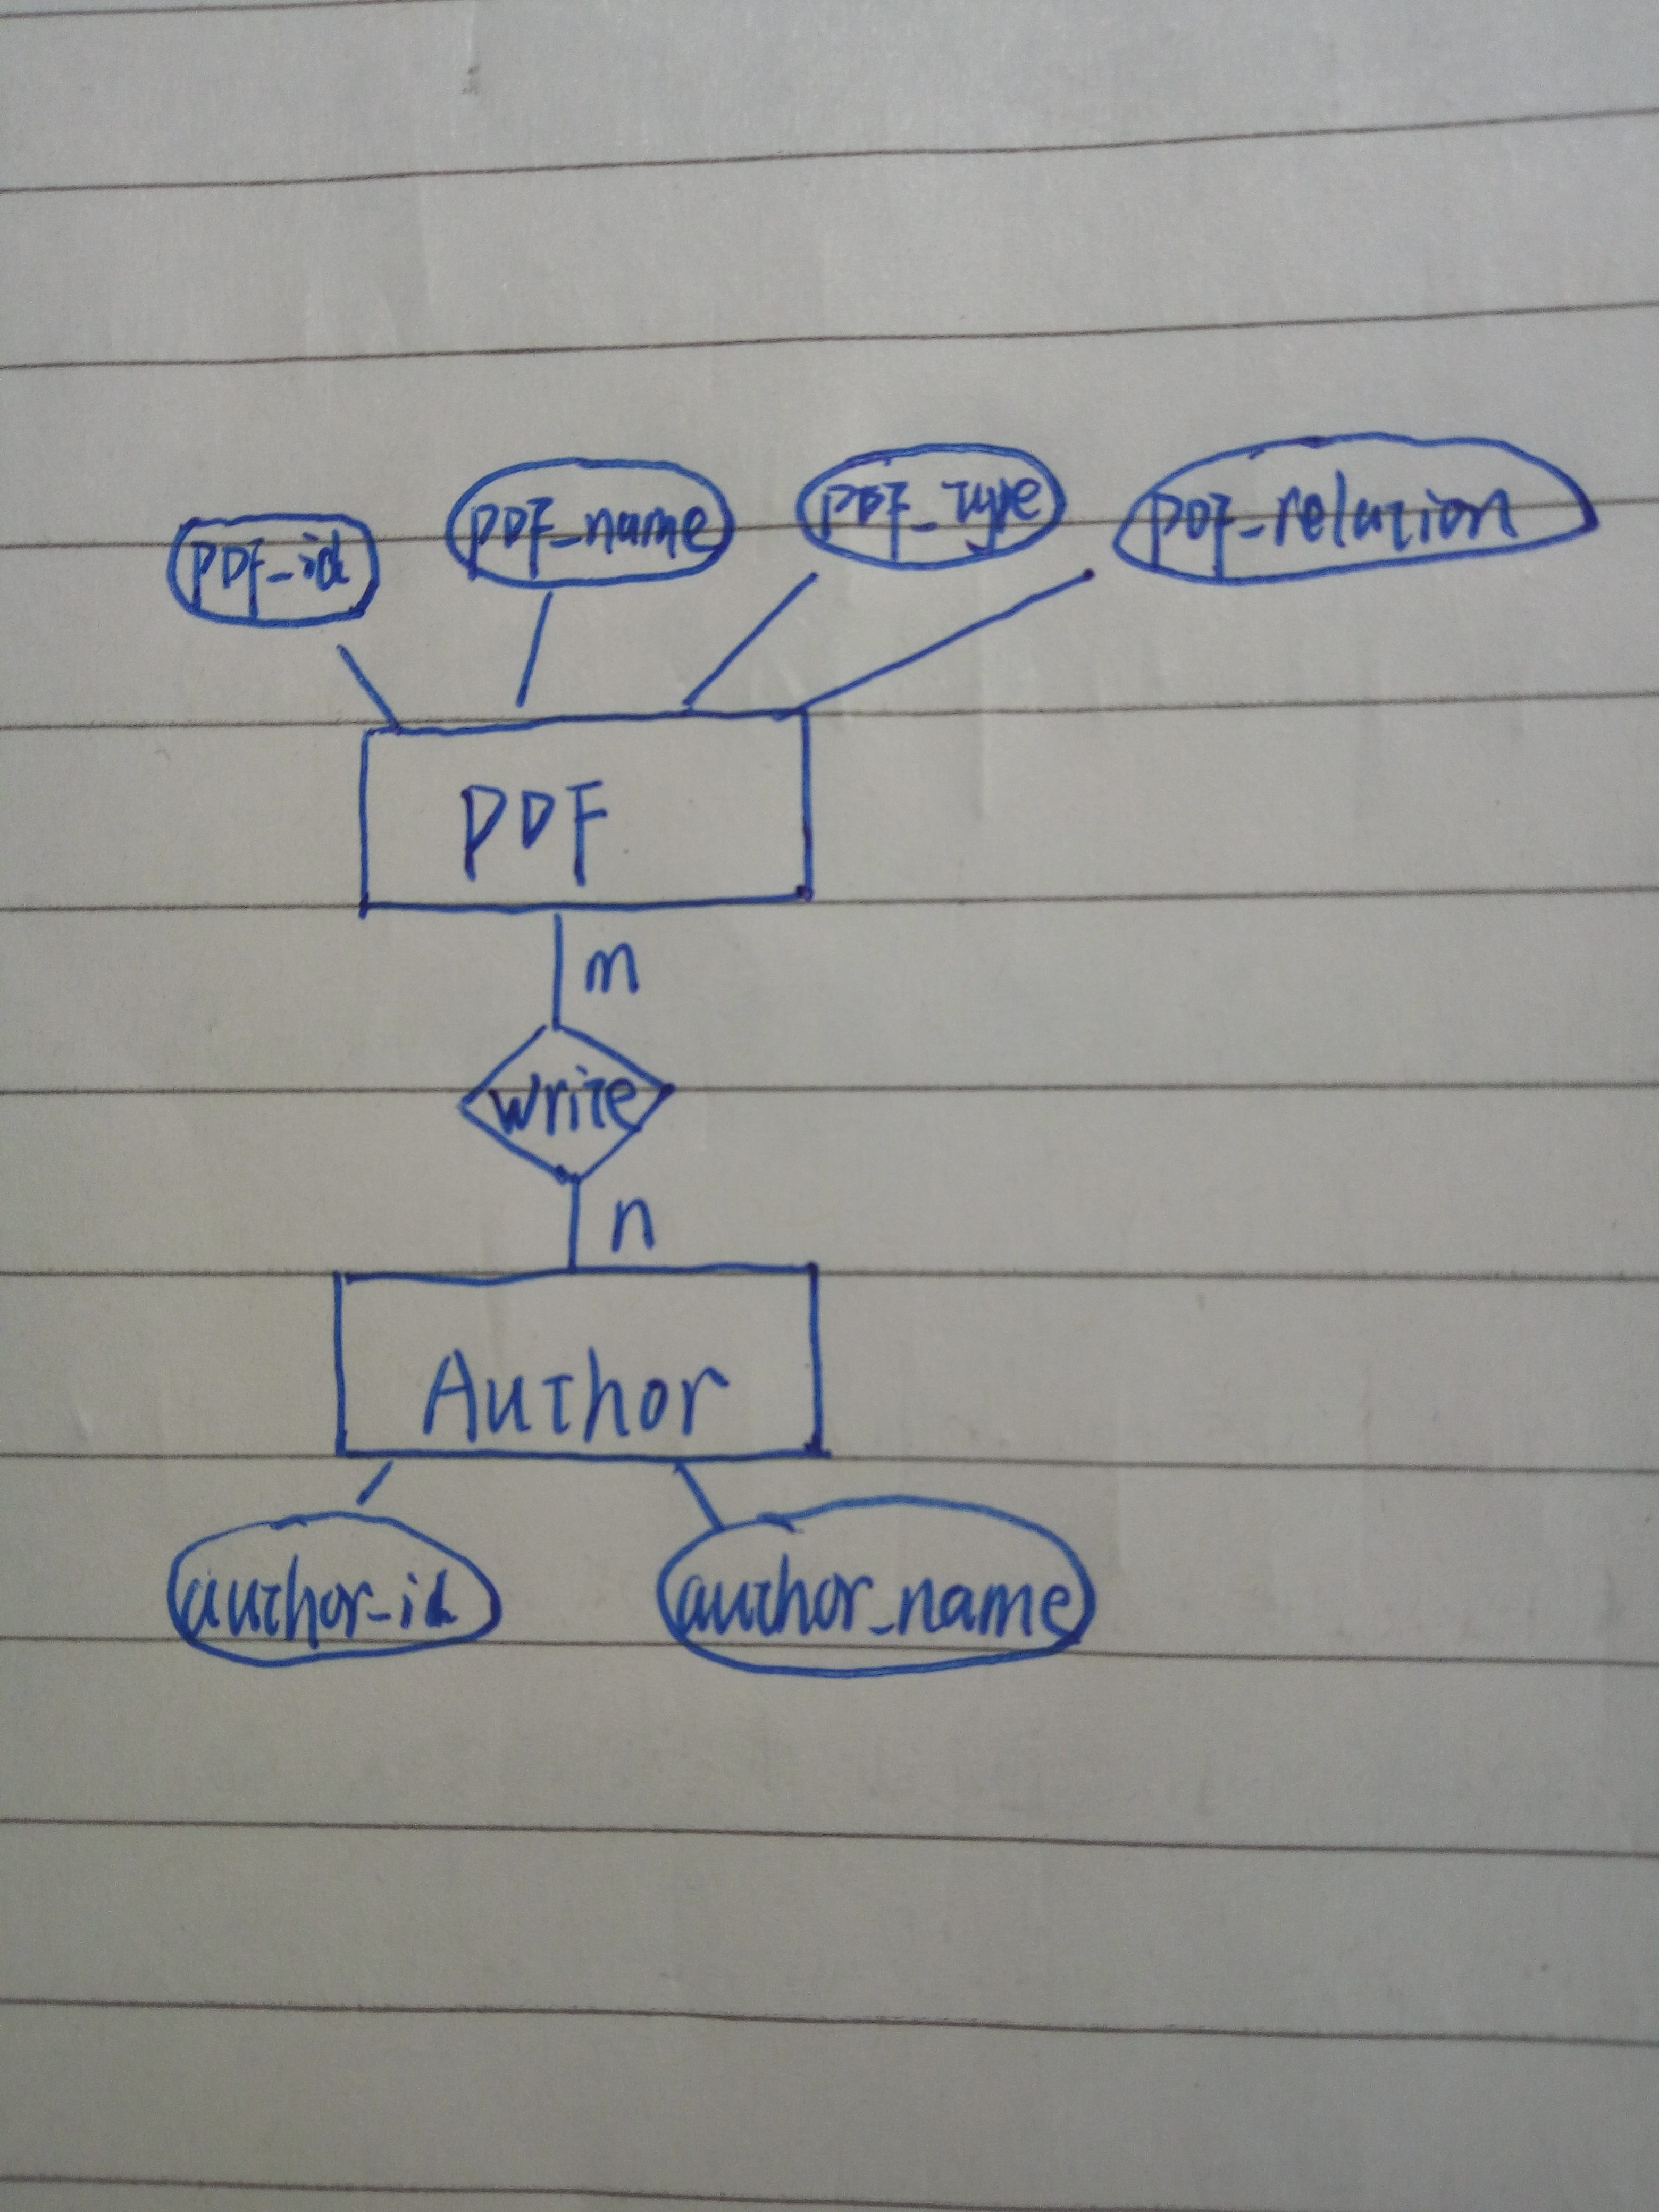 PDF_id
PDF_name
PDF_Type
PDF_relation
PDF
m
write
n
Author
author_id
author_name